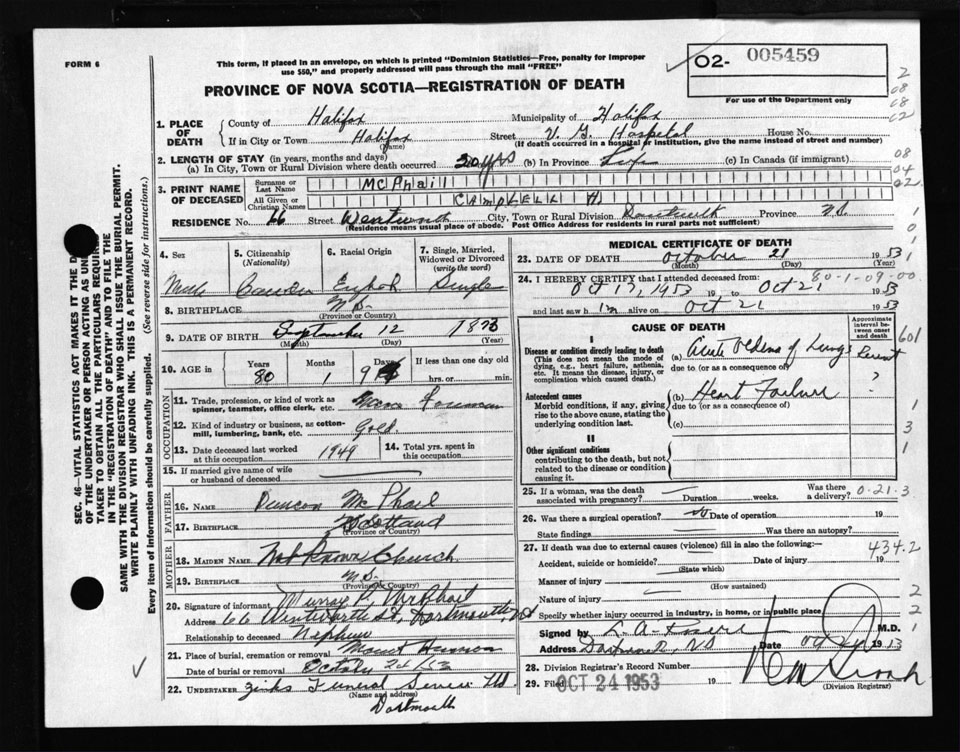 FORM 6
This form, if placed in an envelope, on which is printed "Dominion Statistics—Free, penalty for improper
use $50," and properly addressed will pass through the mail "FREE"
O2- 005459
For use of the Department only
PROVINCE OF NOVA SCOTIA—REGISTRATION OF DEATH
1. PLACE OF DEATH
County of Halifax Municipality of Halifax
If in City or Town Halifax Street V. G. Hospital House No.
(Name) (If death occurred in a hospital or institution, give the name instead of street and number)
2. LENGTH OF STAY (in years, months and days)
(a) In City, Town or Rural Division where death occurred 20 yrs (b) In Province Life (c) In Canada (if immigrant)
3. PRINT NAME OF DECEASED
Surname or Last Name McPhail
All Given or Christian Names CAMPBELL H
RESIDENCE No. 66 Street Wentworth City, Town or Rural Division Dartmouth Province N.S.
(Residence means usual place of abode. Post Office Address for residents in rural parts not sufficient)
4. Sex
Male
5. Citizenship (Nationality)
6. Racial Origin
7. Single, Married, Widowed or Divorced (write the word)
Single
8. BIRTHPLACE N.S.
(Province or Country)
9. DATE OF BIRTH September 12 1873
(Month) (Day) (Year)
10. AGE in Years Months Days If less than one day old
80 1 9 hrs. or min.
OCCUPATION
11. Trade, profession, or kind of work as spinner, teamster, office clerk, etc. Foreman
12. Kind of industry or business, as cotton-mill, lumbering, bank, etc. Gold
13. Date deceased last worked at this occupation 1949
14. Total yrs. spent in this occupation
15. If married give name of wife or husband of deceased
FATHER
16. NAME Duncan McPhail
17. BIRTHPLACE Scotland
(Province or Country)
MOTHER
18. MAIDEN NAME Not Known Church
19. BIRTHPLACE N.S.
(Province or Country)
20. Signature of informant Murray McPhail
Address 66 Wentworth St, Dartmouth, NS
Relationship to deceased Nephew
21. Place of burial, cremation or removal Mount Hermon
Date of burial or removal October
22. UNDERTAKER Zinks Funeral Service Ltd
(Name and address)
Dartmouth
MEDICAL CERTIFICATE OF DEATH
23. DATE OF DEATH October 21 1953
(Month) (Day)
24. I HEREBY CERTIFY that I attended deceased from: 80-1-09-00
Oct 17, 1953 19 to Oct 21 1953
and last saw him alive on Oct 21 1953
CAUSE OF DEATH
Approximate interval between onset and death
I
Disease or condition directly leading to death
(This does not mean the mode of dying, e.g., heart failure, asthenia, etc. It means the disease, injury, or complication which caused death.)
(a) Acute Oedema of Lungs
due to (or as a consequence of)
?
Antecedent causes
Morbid conditions, if any, giving rise to the above cause, stating the underlying condition last.
(b) Heart Failure
due to (or as a consequence of)
(c)
II
Other significant conditions
contributing to the death, but not related to the disease or condition causing it.
25. If a woman, was the death associated with pregnancy? Duration weeks. Was there a delivery? 0-21-3
26. Was there a surgical operation? no Date of operation 19
State findings Was there an autopsy?
27. If death was due to external causes (violence) fill in also the following: 434.2
Accident, suicide or homicide? Date of injury 19
(State which)
Manner of injury
(How sustained)
Nature of injury
Specify whether injury occurred in industry, in home, or in public place
Signed by M.D.
Address Date Oct 19
28. Division Registrar's Record Number
29. Filed OCT 24 1953 19
(Division Registrar)
SEC. 46—VITAL STATISTICS ACT MAKES IT THE
OF THE UNDERTAKER OR PERSON ACTING AS
TAKER TO OBTAIN ALL THE PARTICULARS REQUIRED
IN THE "REGISTRATION OF DEATH" AND TO FILE THE
SAME WITH THE DIVISION REGISTRAR WHO SHALL ISSUE THE BURIAL PERMIT.
WRITE PLAINLY WITH UNFADING INK. THIS IS A PERMANENT RECORD.
Every item of information should be carefully supplied. (See reverse side for instructions.)
2
08
08
62
08
04
02
1
0
1
601
1
3
1
2
2
1